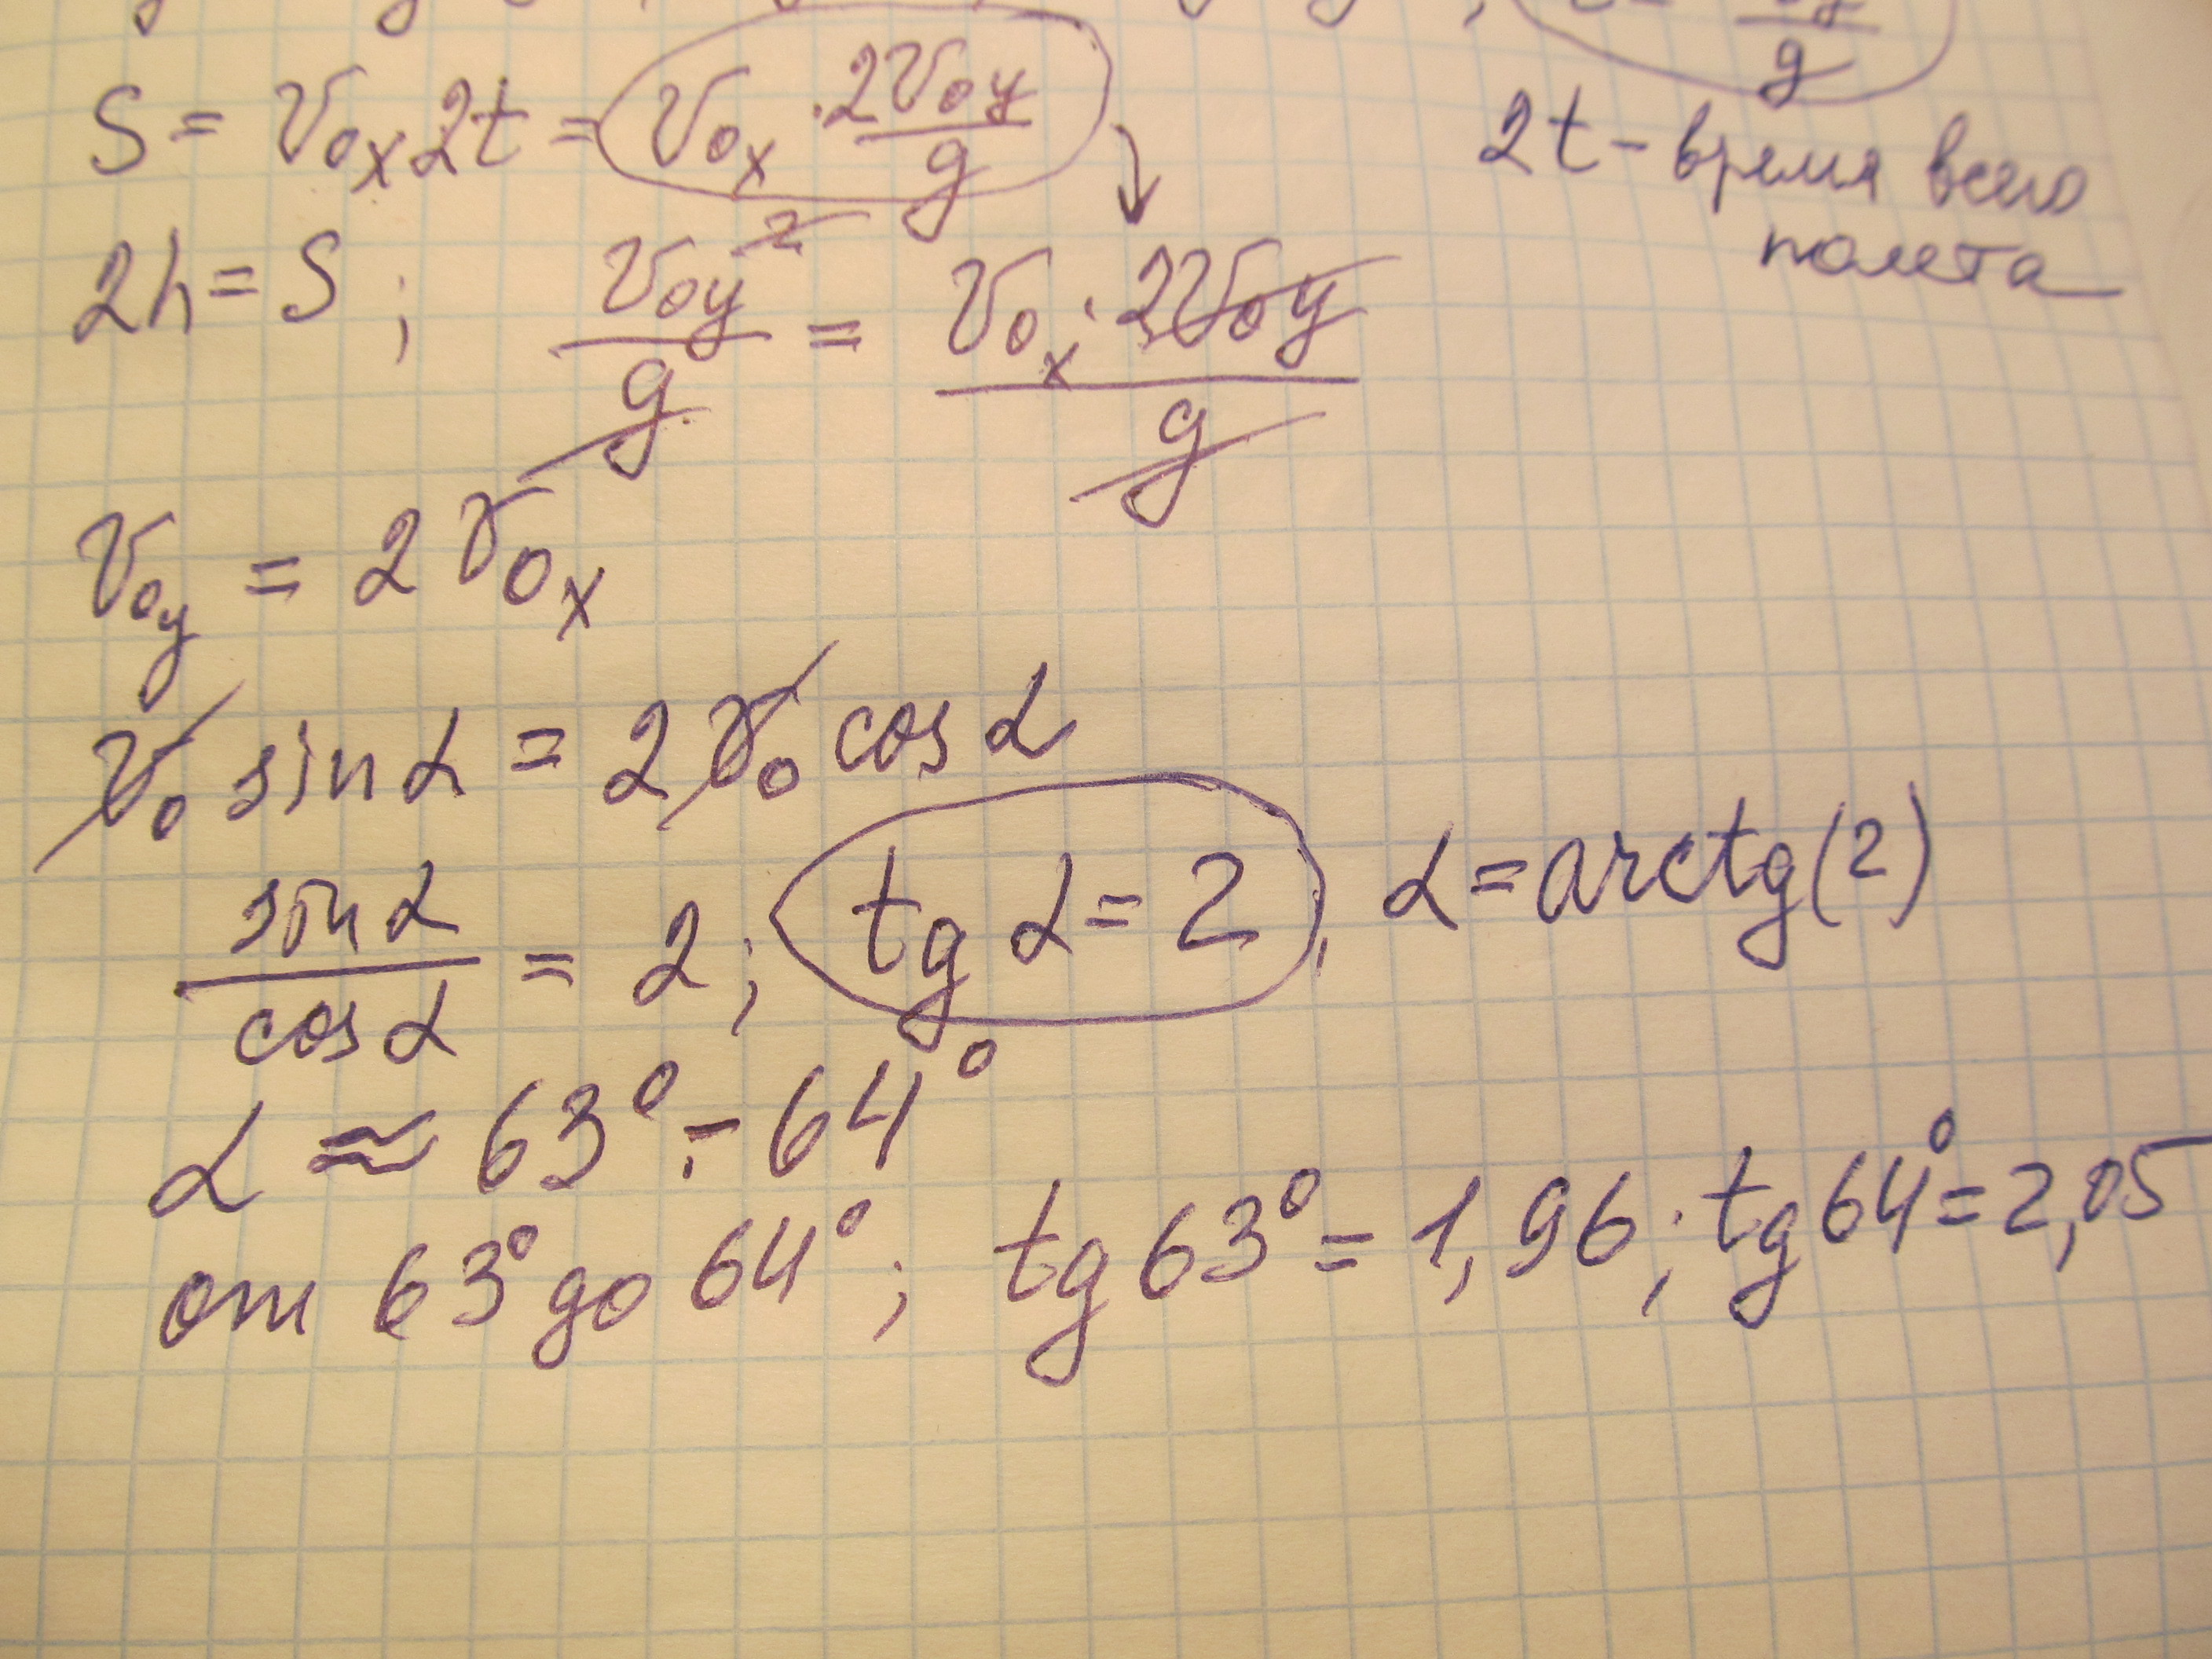 S = V₀ₓ2t = V₀ₓ · 2V₀y / g
g
2t - время всего
полета
2h = S ; V₀y² / g = V₀ₓ · 2V₀y / g
V₀y = 2 V₀ₓ
V₀ sin α = 2 V₀ cos α
sin α / cos α = 2 ; tg α = 2, α = arctg(2)
α ≈ 63° ÷ 64°
от 63° до 64° ; tg 63° = 1,96 ; tg 64° = 2,05